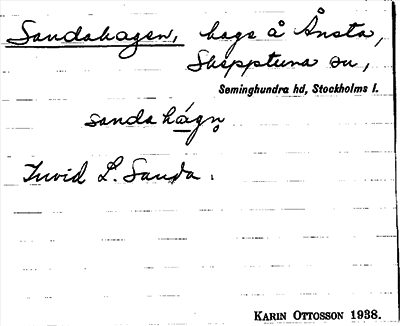 Sandahagen, hage å Ånsta,
Skepptuna sn,
Seminghundra hd, Stockholms l.
sanda hágn̥
Invid L. Sanda.
KARIN OTTOSSON 1938.